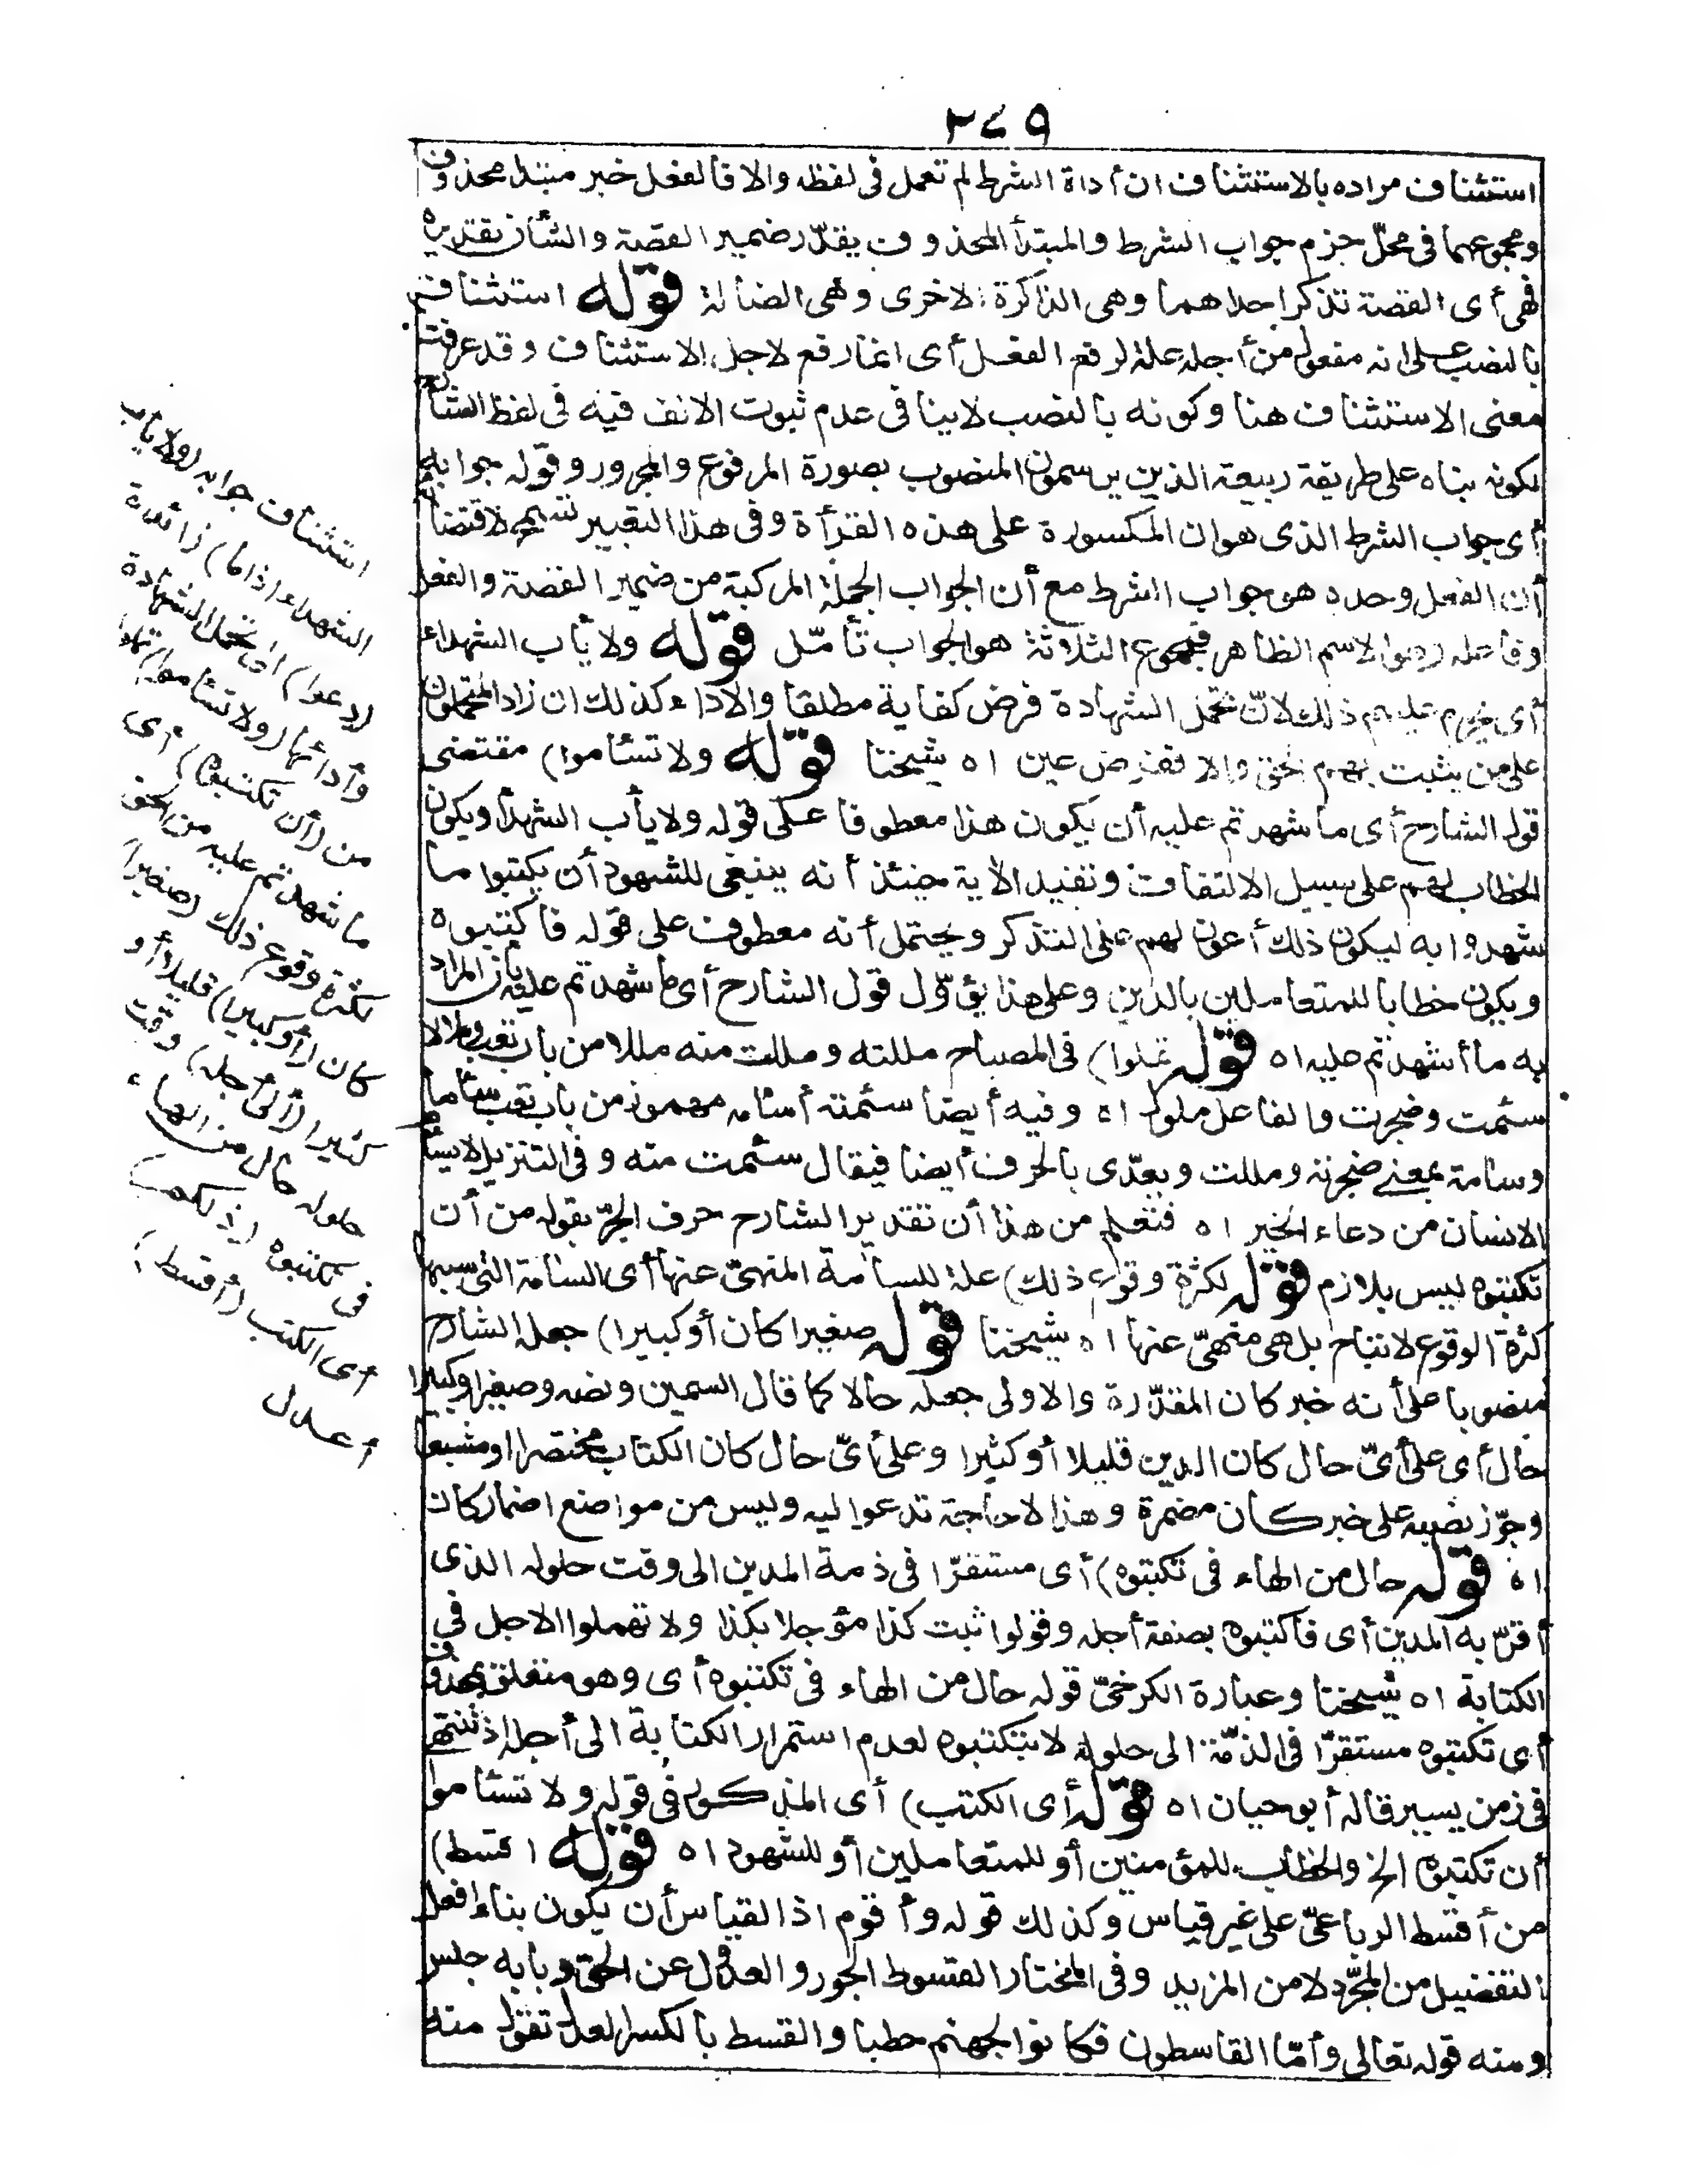 ٢٤٩
استئناف مراده بالاستئناف ان أداة الشرط لم تعمل في لفظه والا فالفعل خبر مبتدا محذوف
ومجموعهما في محلّ جزم جواب الشرط والمبتدأ المحذوف يقدّر ضمير القصة والشأن تقديره
فهي أى القصة تذكر احداهما وهى الذاكرة الاخرى وهى الضالة قوله استئناف
بالنصب على انه مفعول من أجله علة لرفع الفعل أى انما رفع لاجل الاستئناف وقد عرفت
معنى الاستئناف هنا وكونه بالنصب لا ينافى عدم ثبوت الالف فيه فى لفظ الشارح
لكونه بناه على طريقة ربيعة الذين يرسمون المنصوب بصورة المرفوع والمجرور وقوله جوابه
أى جواب الشرط الذى هو ان المكسورة على هذه القرأة وفى هذا التعبير تسمح لاقتضائه
أن الفعل وحده هو جواب الشرط مع أن الجواب الجملة المركبة من ضمير القصة والفعل
وفاعله وهو الاسم الظاهر فمجموع الثلاثة هو الجواب تأمّل قوله ولا يأب الشهداء
أى يحرم عليهم ذلك لانّ تحمّل الشهادة فرض كفاية مطلقا والاداء كذلك ان زاد المتحملون
على من يثبت بهم الحق والا ففرض عين اه شيخنا قوله ولا تسأموا) مقتضى
قول الشارح أى ما شهدتم عليه أن يكون هذا معطوفا على قوله ولا يأب الشهدأ ويكون
الخطاب لهم على سبيل الالتفات وتفيد الأية حينئذ أنه ينبغى للشهود أن يكتبوا ما
شهدوا به ليكون ذلك أعون لهم على التذكر ويحتمل أنه معطوف على قوله فاكتبوه
ويكون خطابا للمتعاملين بالدين وعلى هذا يؤوّل قول الشارح أى ما شهدتم عليه بان المراد
به ما أشهدتم عليه اه قوله تملوا) فى المصباح مللته ومللت منه مللا من باب تعب وملالا
سئمت وضجرت والفاعل ملول اه وفيه أيضا سئمته أسأمه مهموز من باب تعب سأما
وسأمة بمعنى ضجرته ومللت ويعدّى بالحرف أيضا فيقال سئمت منه وفى التنزيل لا يسأم
الانسان من دعاء الخير اه فتعلم من هذا أن تقدير الشارح حرف الجرّ بقوله من أن
تكتبوه ليس بلازم قوله لكثرة وقوع ذلك) علة للسأمة المنهىّ عنها أى السأمة التى سببها
كثرة الوقوع لا تباح بل هى منهىّ عنها اه شيخنا قوله صغيرا كان أو كبيرا) جعله الشارح
منصوبا على أنه خبر كان المقدّرة والاولى جعله حالا كما قال السمين ونصه وصغيرا وكبيرا
حال أى على أىّ حال كان الدين قليلا أو كثيرا وعلى أىّ حال كان الكتاب مختصرا او مشبعا
وجوّز نصبه على خبر كان مضمرة وهذا لا حاجة تدعو اليه وليس من مواضع اضمار كان
اه قوله حال من الهاء فى تكتبوه) أى مستقرّا فى ذمة المدين الى وقت حلوله الذى
أقرّ به المدين أى فاكتبوه بصفة أجله وقولوا ثبت كذا مؤجلا بكذا ولا تهملوا الاجل فى
الكتابة اه شيخنا وعبارة الكرخىّ قوله حال من الهاء فى تكتبوه أى وهو متعلق بمحذوف
أى تكتبوه مستقرّا فى الذمّة الى حلوله لا بتكتبوه لعدم استمرار الكتابة الى أجله اذ تنتهى
فى زمن يسير قاله أبو حيان اه قوله أى الكتب) أى المذكور فى قوله ولا تسئاموا
أن تكتبوه الخ والخطاب للمؤمنين أو للمتعاملين أو للشهود اه قوله اقسط)
من أقسط الرباعىّ على غير قياس وكذلك قوله وأقوم اذ القياس أن يكون بناء افعل
التفضيل من المجرّد لا من المزيد وفى المختار القسوط الجور والعدول عن الحق وبابه جلس
ومنه قوله تعالى وأمّا القاسطون فكانوا لجهنم حطبا والقسط بالكسر العدل تقول منه
استئناف جوابه (ولا يأب
الشهداء اذا ما) زائدة
(دعوا) الى تحمل الشهادة
وأدائها (ولا تسئاموا) تملوا
من (أن تكتبوه) أى
ما شهدتم عليه من الحق
لكثرة وقوع ذلك (صغيرا)
كان (أو كبيرا) قليلا أو
كثيرا (الى أجله) وقت
حلوله حال من الهاء
فى تكتبوه (ذلكم)
أى الكتب (أقسط)
أعدل